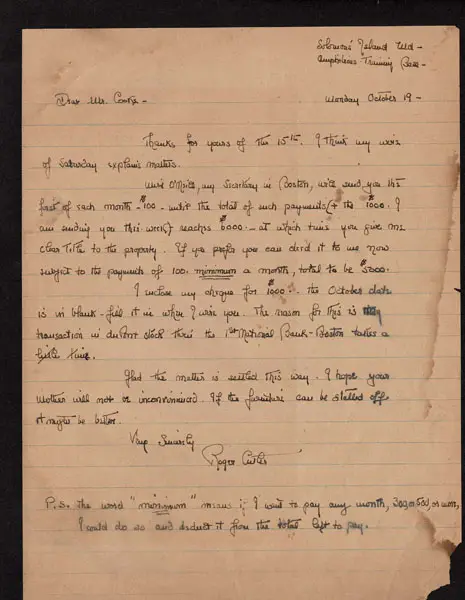 Solomons' Island Md -
Amphibious Training Base -
Dear Mr. Cooke - Monday October 19 -
Thanks for yours of the 15th. I think my wire
of Saturday explains matters.
Miss O'Neill, my Secretary in Boston, will send you the
first of each month $100 - until the total of such payments (+ the $1000. I
am sending you this week) reaches $6000 - at which time you give me
clear title to the property. If you prefer you can deed it to me now
subject to the payments of 100. minimum a month, total to be $5000.
I enclose my cheque for $1000 - the October date
is in blank - fill it in when I wire you. The reason for this is my
transaction in duPont stock thru the 1st National Bank - Boston takes a
little time.
Glad the matter is settled this way. I hope your
Mother will not be inconvenienced. If the furniture can be stalled off
it might be better.
Very Sincerely
Roger Cutler
P.S. The word "minimum" means if I want to pay any month, 300, or 500, or more,
I could do so and deduct it from the total left to pay.